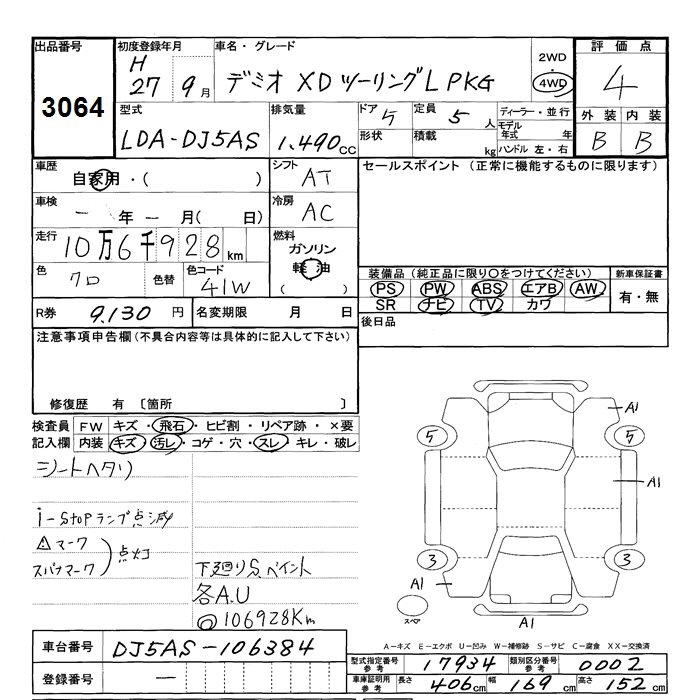 出品番号 初度登録年月 車名・グレード 2WD・4WD 評価点
3064 H27年9月 デミオ XDツーリングL PKG 4
型式 排気量 ドア 5 定員 5人 ディーラー・並行 外装 内装
LDA-DJ5AS 1.490cc 形状 積載 kg モデル年式 年 B B
ハンドル 左・右
車歴 シフト セールスポイント (正常に機能するものに限ります)
自家用・( ) AT
車検 冷房
ー年ー月( 日) AC
走行 燃料
10万6千928km ガソリン
軽油
( )
色 色替 色コード 装備品(純正品に限り○をつけてください) 新車保証書
クロ 41W PS PW ABS エアB AW 有・無
SR ナビ TV カワ
R券 9.130円 名変期限 月 日 後日品
注意事項申告欄(不具合内容等は具体的に記入して下さい)
修復歴 有 〔箇所 〕
検査員記入欄 FW キズ・飛石・ヒビ割・リペア跡・×要
内装 キズ・汚レ・コゲ・穴・スレ・キレ・破レ
シートヘタリ
i-stopランプ点滅
⚠マーク
スパナマーク )点灯
下廻りSペイント
各A.U
◎106928Km
A1
5 5
A1
3 3
A1
スペア
A1
A-キズ E-エクボ U-凹み W-補修跡 S-サビ C-腐食 XX-交換済
車台番号 DJ5AS-106384
型式指定番号参考 17934 類別区分番号参考 0002
登録番号 ー
車庫証明用参考 長さ 406cm 幅 169cm 高さ 152cm